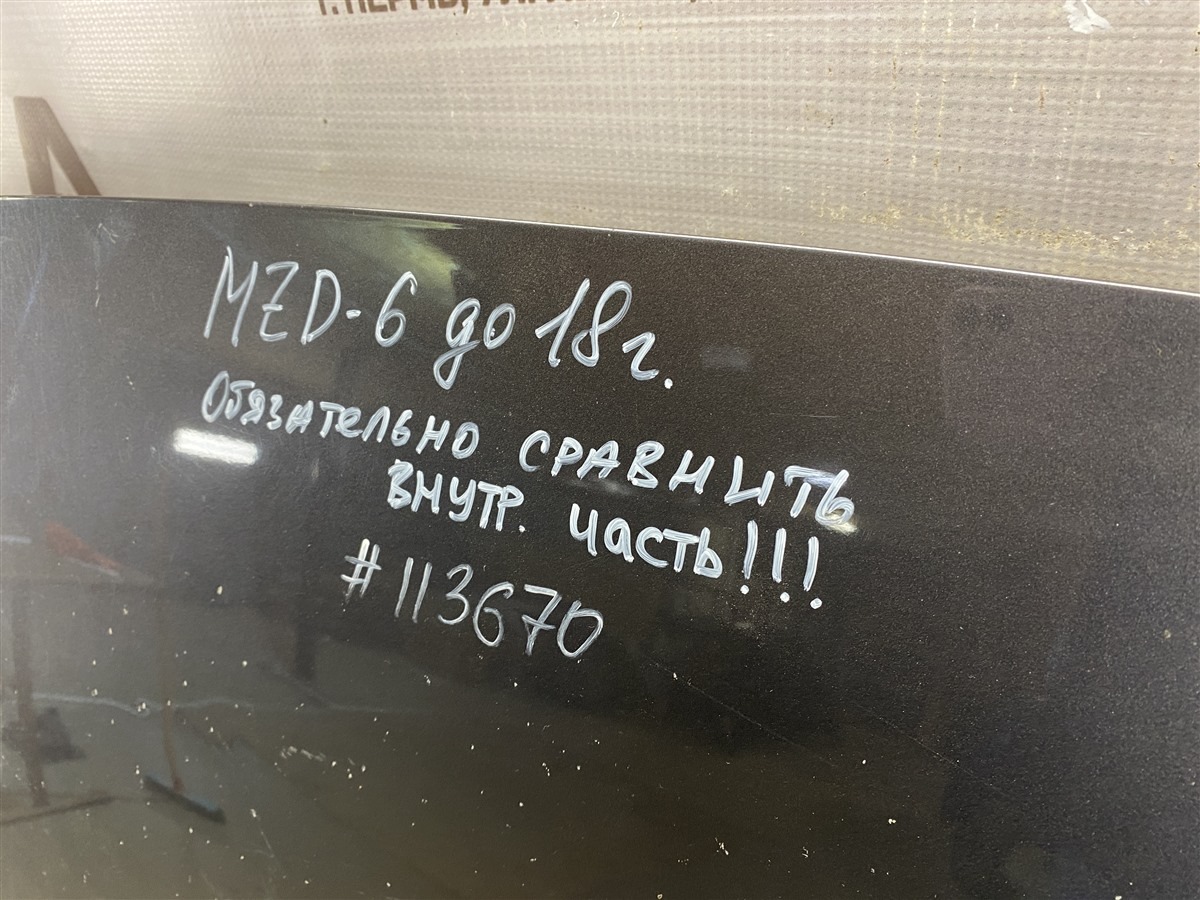 г. Пермь,
MZD-6 до 18 г.
Обязательно сравнить
внутр. часть!!!
#113670